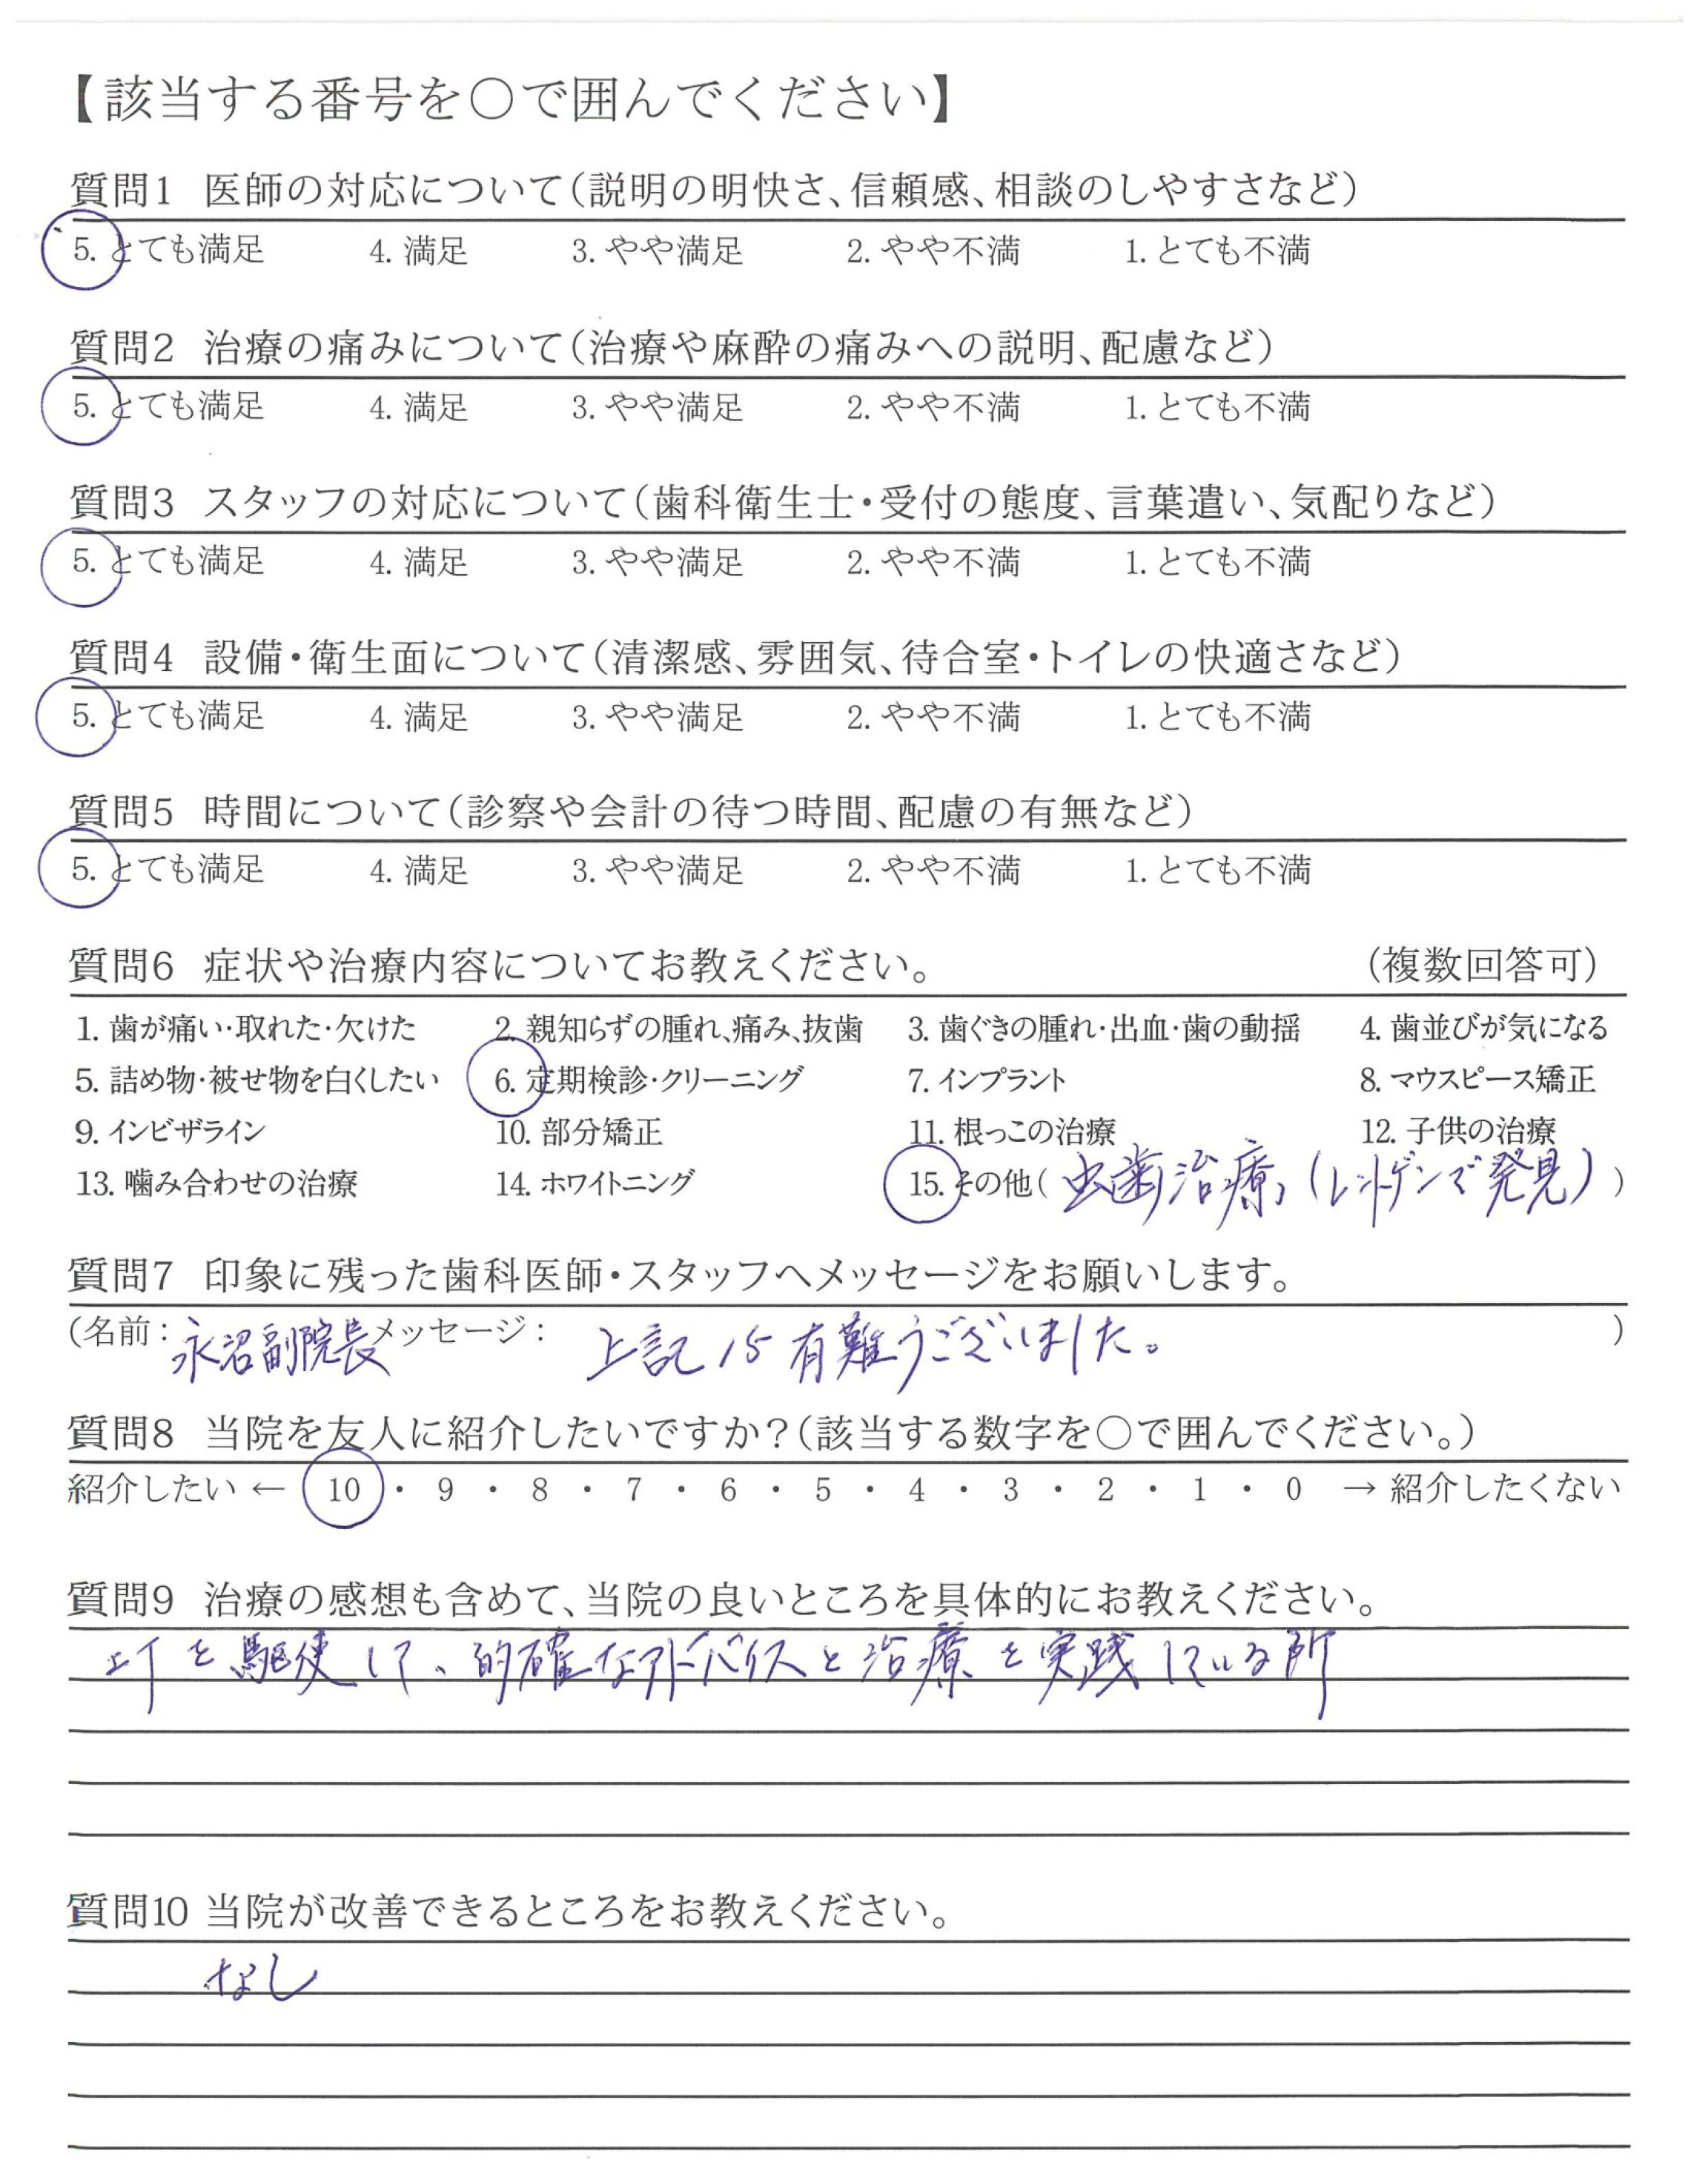 【該当する番号を○で囲んでください】
質問1 医師の対応について（説明の明快さ、信頼感、相談のしやすさなど）
5. とても満足 4. 満足 3. やや満足 2. やや不満 1. とても不満
質問2 治療の痛みについて（治療や麻酔の痛みへの説明、配慮など）
5. とても満足 4. 満足 3. やや満足 2. やや不満 1. とても不満
質問3 スタッフの対応について（歯科衛生士・受付の態度、言葉遣い、気配りなど）
5. とても満足 4. 満足 3. やや満足 2. やや不満 1. とても不満
質問4 設備・衛生面について（清潔感、雰囲気、待合室・トイレの快適さなど）
5. とても満足 4. 満足 3. やや満足 2. やや不満 1. とても不満
質問5 時間について（診察や会計の待つ時間、配慮の有無など）
5. とても満足 4. 満足 3. やや満足 2. やや不満 1. とても不満
質問6 症状や治療内容についてお教えください。 （複数回答可）
1. 歯が痛い・取れた・欠けた 2. 親知らずの腫れ、痛み、抜歯 3. 歯ぐきの腫れ・出血・歯の動揺 4. 歯並びが気になる
5. 詰め物・被せ物を白くしたい 6. 定期検診・クリーニング 7. インプラント 8. マウスピース矯正
9. インビザライン 10. 部分矯正 11. 根っこの治療 12. 子供の治療
13. 噛み合わせの治療 14. ホワイトニング 15. その他（ 虫歯治療（レントゲンで発見） ）
質問7 印象に残った歯科医師・スタッフへメッセージをお願いします。
（名前：永沼副院長 メッセージ： 上記15有難うございました。 ）
質問8 当院を友人に紹介したいですか？（該当する数字を○で囲んでください。）
紹介したい ← 10 ・ 9 ・ 8 ・ 7 ・ 6 ・ 5 ・ 4 ・ 3 ・ 2 ・ 1 ・ 0 → 紹介したくない
質問9 治療の感想も含めて、当院の良いところを具体的にお教えください。
ITを駆使して、的確なアドバイスと治療を実践している所
質問10 当院が改善できるところをお教えください。
なし